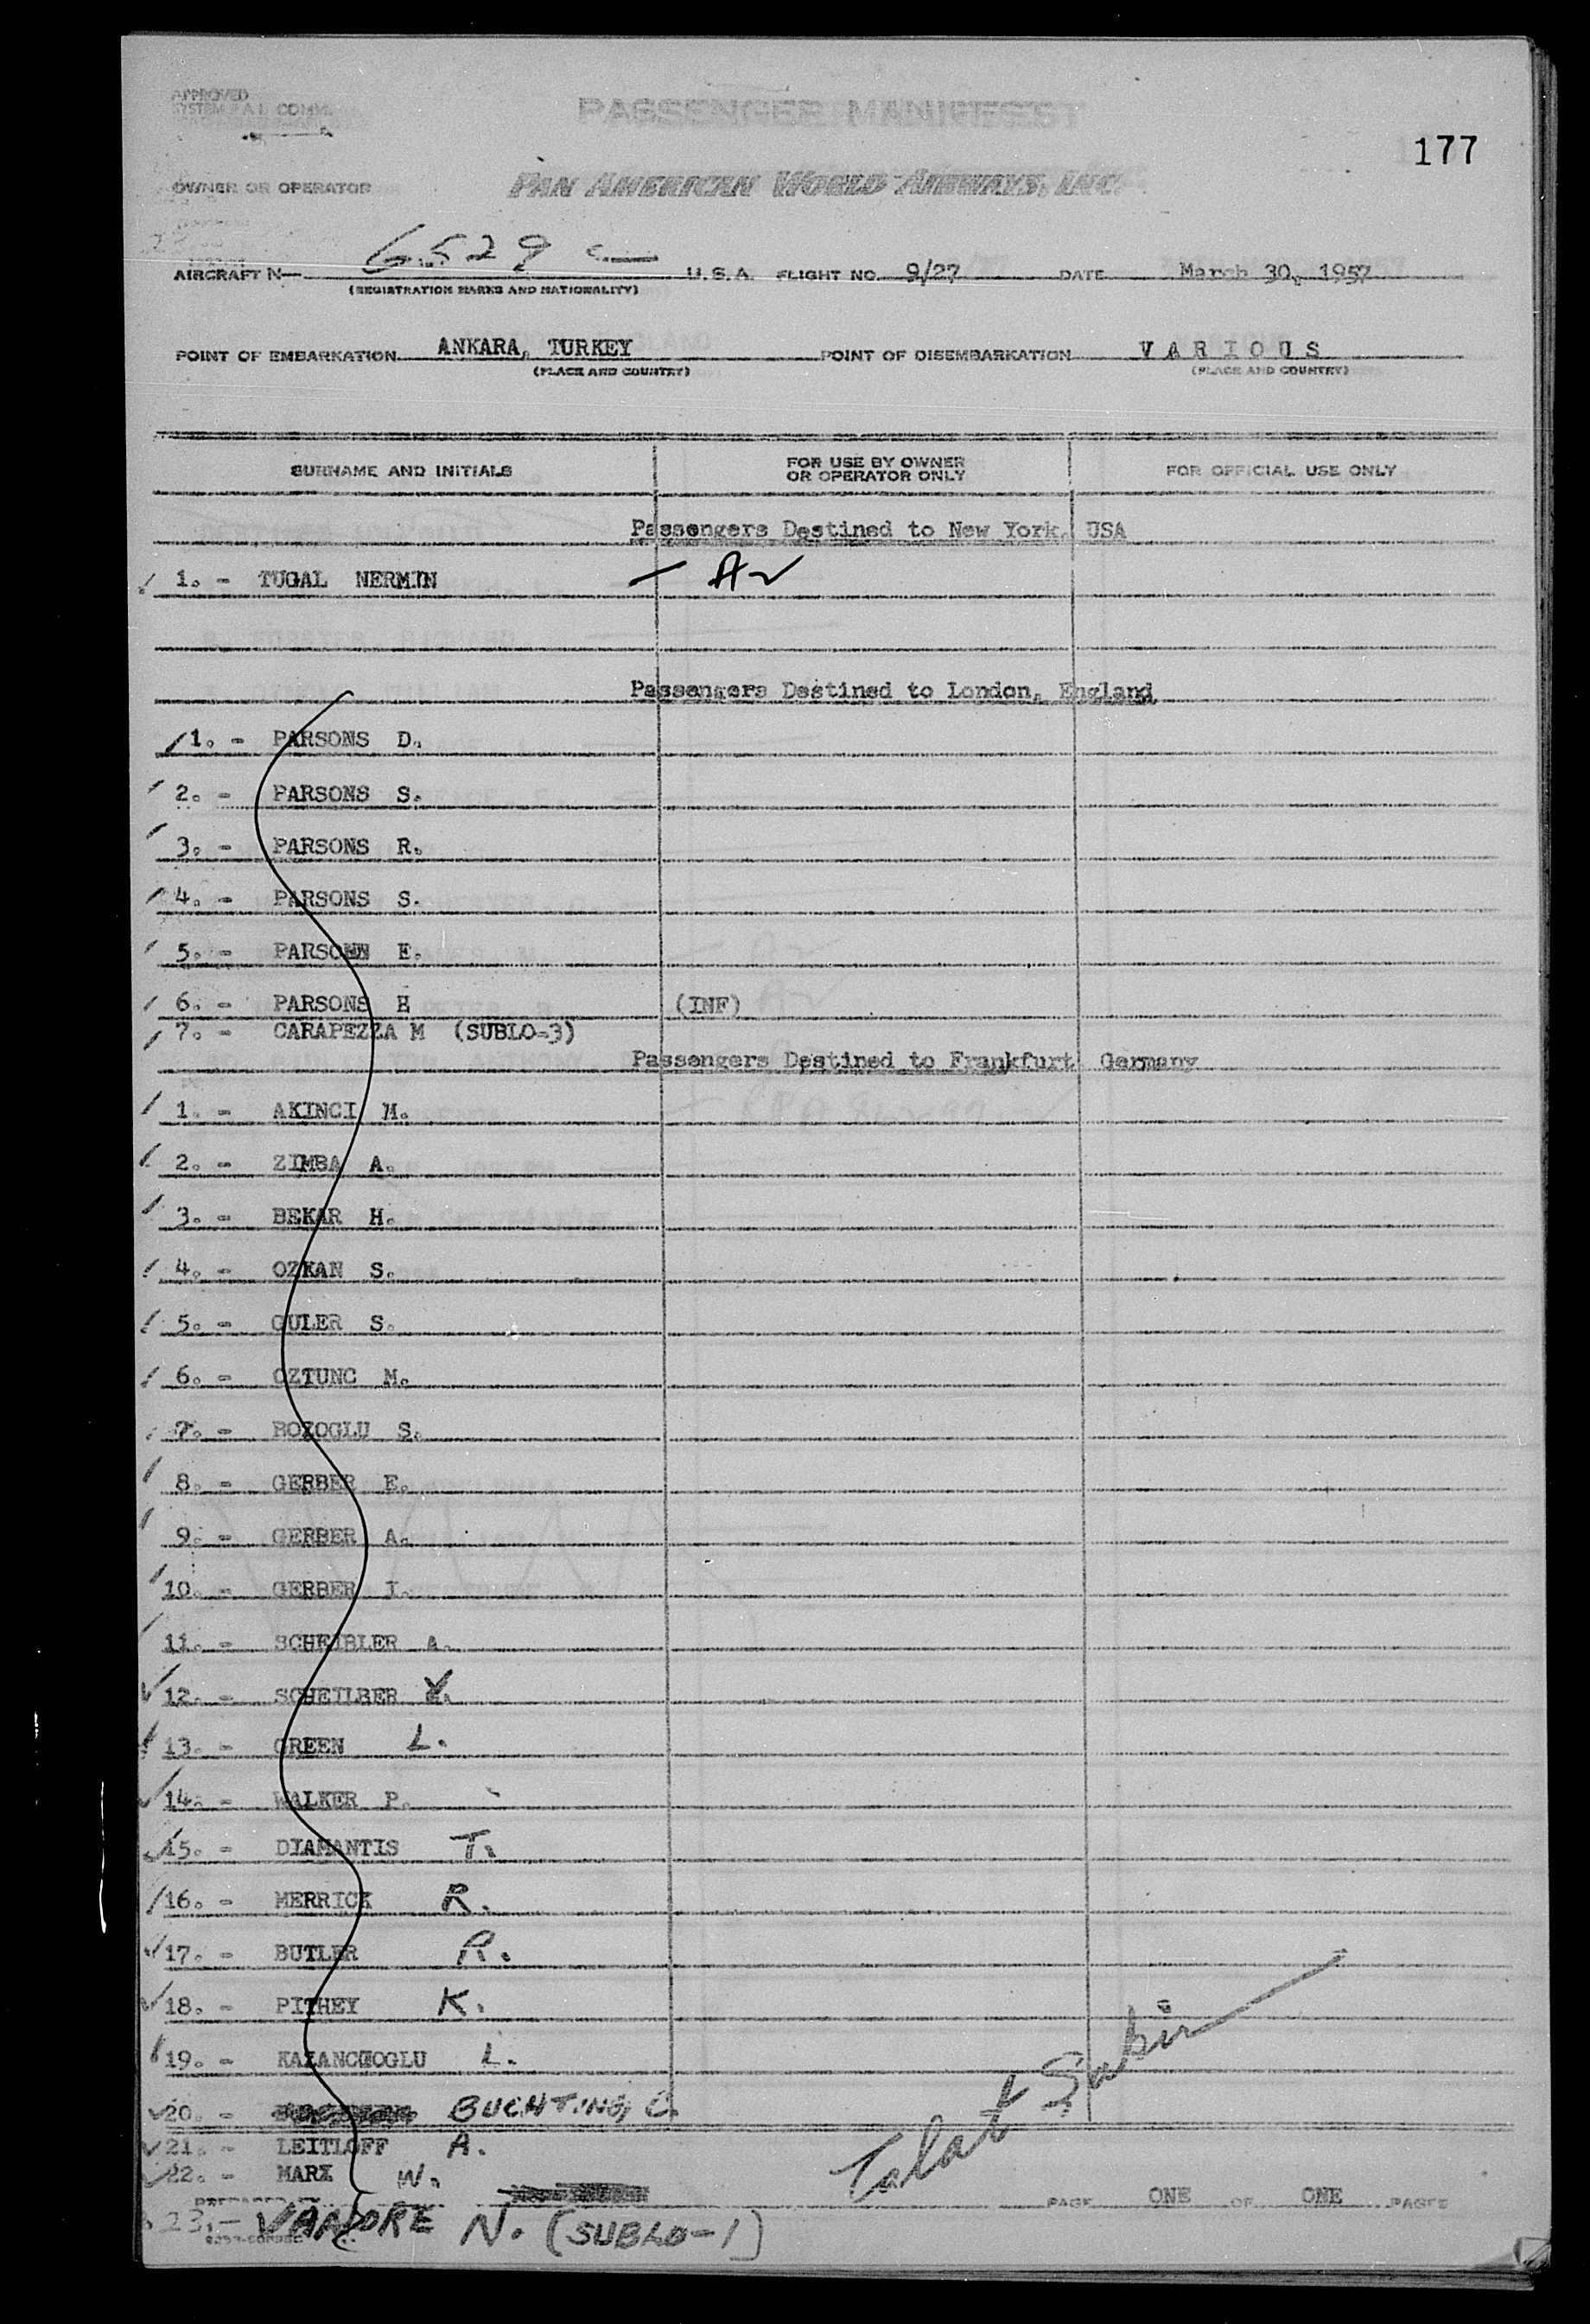 APPROVED
PASSENGER MANIFEST
177
OWNER OR OPERATOR PAN AMERICAN WORLD AIRWAYS, INC.
AIRCRAFT N— 6529 C U.S.A. FLIGHT NO. 9/27 DATE March 30, 1957
(REGISTRATION MARKS AND NATIONALITY)
POINT OF EMBARKATION ANKARA, TURKEY POINT OF DISEMBARKATION VARIOUS
(PLACE AND COUNTRY) (PLACE AND COUNTRY)
SURNAME AND INITIALS FOR USE BY OWNER OR OPERATOR ONLY FOR OFFICIAL USE ONLY
Passengers Destined to New York, USA
1. - TUGAL NERMIN — Av
Passengers Destined to London, England
1. - PARSONS D.
2. - PARSONS S.
3. - PARSONS R.
4. - PARSONS S.
5. - PARSONS E.
6. - PARSONS H (INF)
7. - CARAPEZZA M (SUBLO-3)
Passengers Destined to Frankfurt, Germany
1. - AKINCI M.
2. - ZIMBA A.
3. - BEKAR H.
4. - OZKAN S.
5. - GULER S.
6. - OZTUNC M.
7. - BOZOGLU S.
8. - GERBER E.
9. - GERBER A.
10. - GERBER I.
11. - SCHEIBLER A.
12. - SCHEILBER Y.
13. - GREEN L.
14. - WALKER P.
15. - DIAMANTIS T.
16. - MERRICK R.
17. - BUTLER R.
18. - PITHEY K.
19. - KAZANCIOGLU L.
20. - BUCHTING, C.
21. - LEITLOFF A.
22. - MARX W.
Talat Sabir
PAGE ONE OF ONE PAGES
23. - VANORE N. (SUBLO-1)